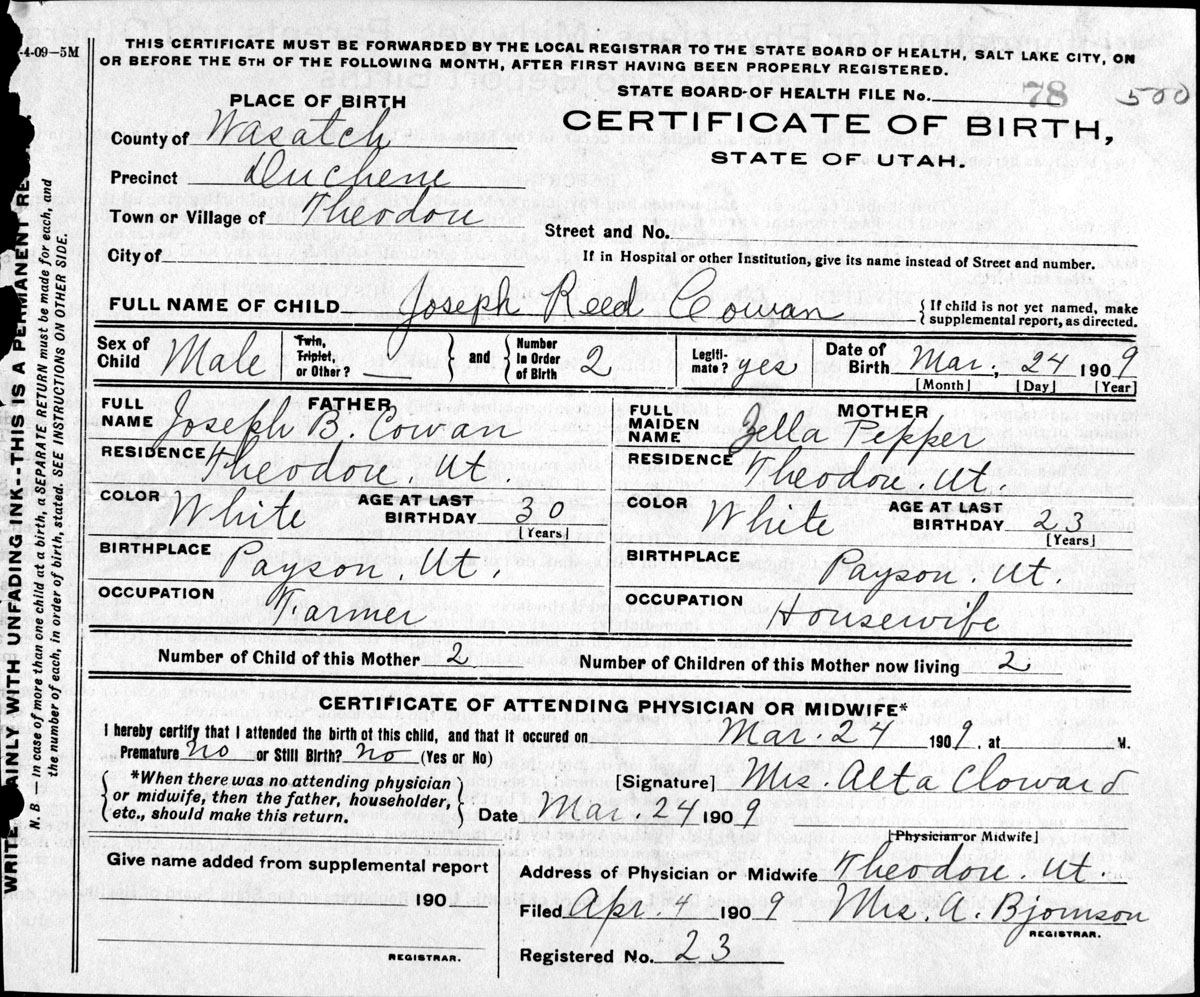 -4-09-5M
THIS CERTIFICATE MUST BE FORWARDED BY THE LOCAL REGISTRAR TO THE STATE BOARD OF HEALTH, SALT LAKE CITY, ON
OR BEFORE THE 5TH OF THE FOLLOWING MONTH, AFTER FIRST HAVING BEEN PROPERLY REGISTERED.
STATE BOARD OF HEALTH FILE No. 78 500
PLACE OF BIRTH
CERTIFICATE OF BIRTH,
STATE OF UTAH.
County of Wasatch
Precinct Duchene
Town or Village of Theodore
Street and No.
City of
If in Hospital or other Institution, give its name instead of Street and number.
FULL NAME OF CHILD Joseph Reed Cowan { If child is not yet named, make
supplemental report, as directed.
Sex of Child Male Twin, Triplet, or Other? — } and { Number in Order of Birth 2 Legiti-mate? yes Date of Birth Mar. 24 1909
[Month] [Day] [Year]
FATHER
FULL NAME Joseph B. Cowan
RESIDENCE Theodore, Ut.
COLOR White AGE AT LAST BIRTHDAY 30
[Years]
BIRTHPLACE Payson, Ut.
OCCUPATION Farmer
MOTHER
FULL MAIDEN NAME Zella Pepper
RESIDENCE Theodore, Ut.
COLOR White AGE AT LAST BIRTHDAY 23
[Years]
BIRTHPLACE Payson, Ut.
OCCUPATION Housewife
Number of Child of this Mother 2 Number of Children of this Mother now living 2
CERTIFICATE OF ATTENDING PHYSICIAN OR MIDWIFE*
I hereby certify that I attended the birth of this child, and that it occured on Mar. 24 1909, at M.
Premature no or Still Birth? no (Yes or No)
{ *When there was no attending physician
or midwife, then the father, householder,
etc., should make this return. }
[Signature] Mrs. Alta Cloward
Date Mar. 24 1909
[Physician or Midwife]
Give name added from supplemental report
190
REGISTRAR.
Address of Physician or Midwife Theodore, Ut.
Filed Apr. 4 1909 Mrs. A. Bjornson
REGISTRAR.
Registered No. 23
WRITE AINLY WITH UNFADING INK--THIS IS A PERMANENT RE
N. B.—In case of more than one child at a birth, a SEPARATE RETURN must be made for each, and
the number of each, in order of birth, stated. SEE INSTRUCTIONS ON OTHER SIDE.